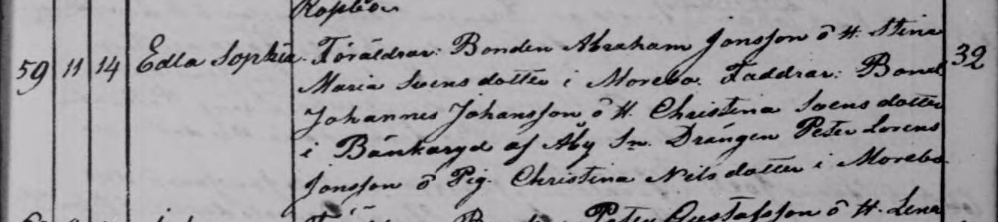 Kopleån
59 11 14 Edla Sophia. Föräldrar: Bonden Abraham Jonsson ô H. Stina 32
Maria Svensdotter i Morebo. Faddrar: Bond.
Johannes Johansson ô H. Christina Svensdotter
i Bänkaryd af Aby Sn. Drängen Peter Lorens
Jonsson ô Pig. Christina Nilsdotter i Morebo.
Peter Gustafsson ô H. Lena